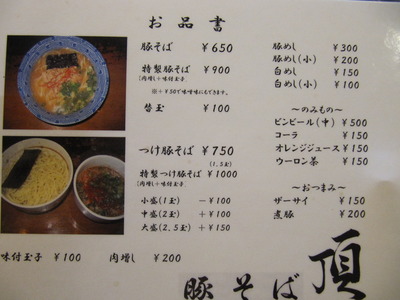 お品書
豚そば ￥650
特製豚そば ￥900
(肉増し+味付玉子)
※＋￥50で味噌味にもできます。
替玉 ￥100
つけ豚そば ￥750
(1.5玉)
特製つけ豚そば ￥1000
(肉増し+味付玉子)
小盛(1玉) －￥100
中盛(2玉) ＋￥100
大盛(2.5玉) ＋￥150
味付玉子 ￥100 肉増し ￥200
豚めし ￥300
豚めし(小) ￥200
白めし ￥150
白めし(小) ￥100
～のみもの～
ビンビール(中) ￥500
コーラ ￥150
オレンジジュース ￥150
ウーロン茶 ￥150
～おつまみ～
ザーサイ ￥150
煮豚 ￥200
豚そば 頂